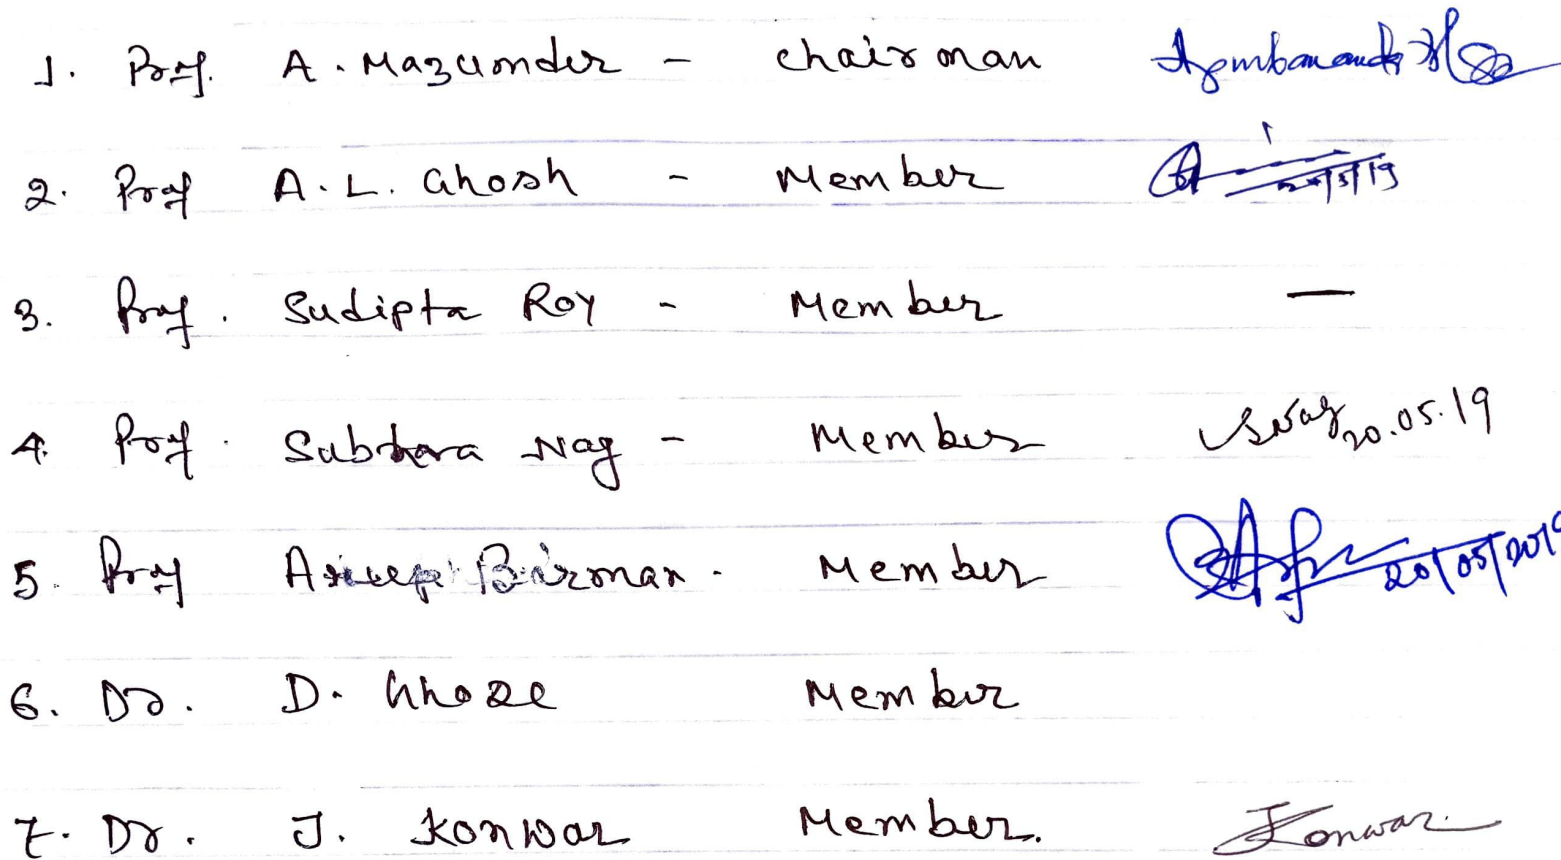 1. Prof. A. Mazumder - Chairman
2. Prof A.L. Ghosh - Member 20/5/19
3. Prof. Sudipta Roy - Member —
4. Prof. Subhara Nag - Member SNag 20.05.19
5. Prof Barman - Member 20/05/2019
6. Dr. D. Ghose Member
7. Dr. J. Konwar Member. JKonwar